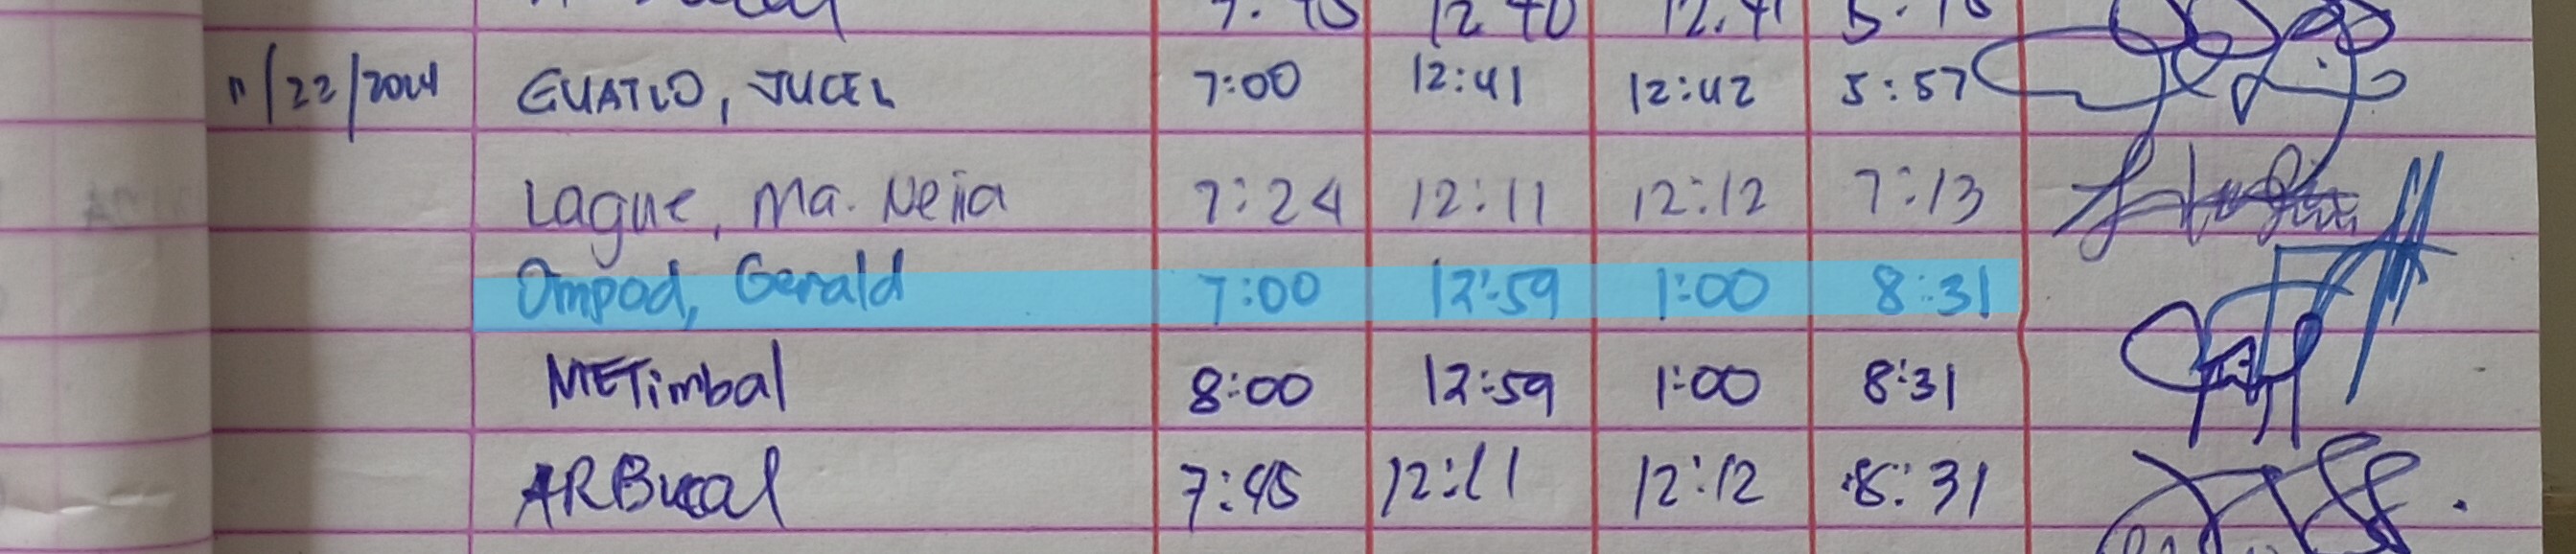 7:45 12:40 12:41 5:18
11/22/2024 GUATLO, JUCEL 7:00 12:41 12:42 5:57
Lague, Ma. Nejia 7:24 12:11 12:12 7:13
Ompod, Gerald 7:00 12:59 1:00 8:31
METimbal 8:00 12:59 1:00 8:31
ARBucal 7:45 12:11 12:12 8:31